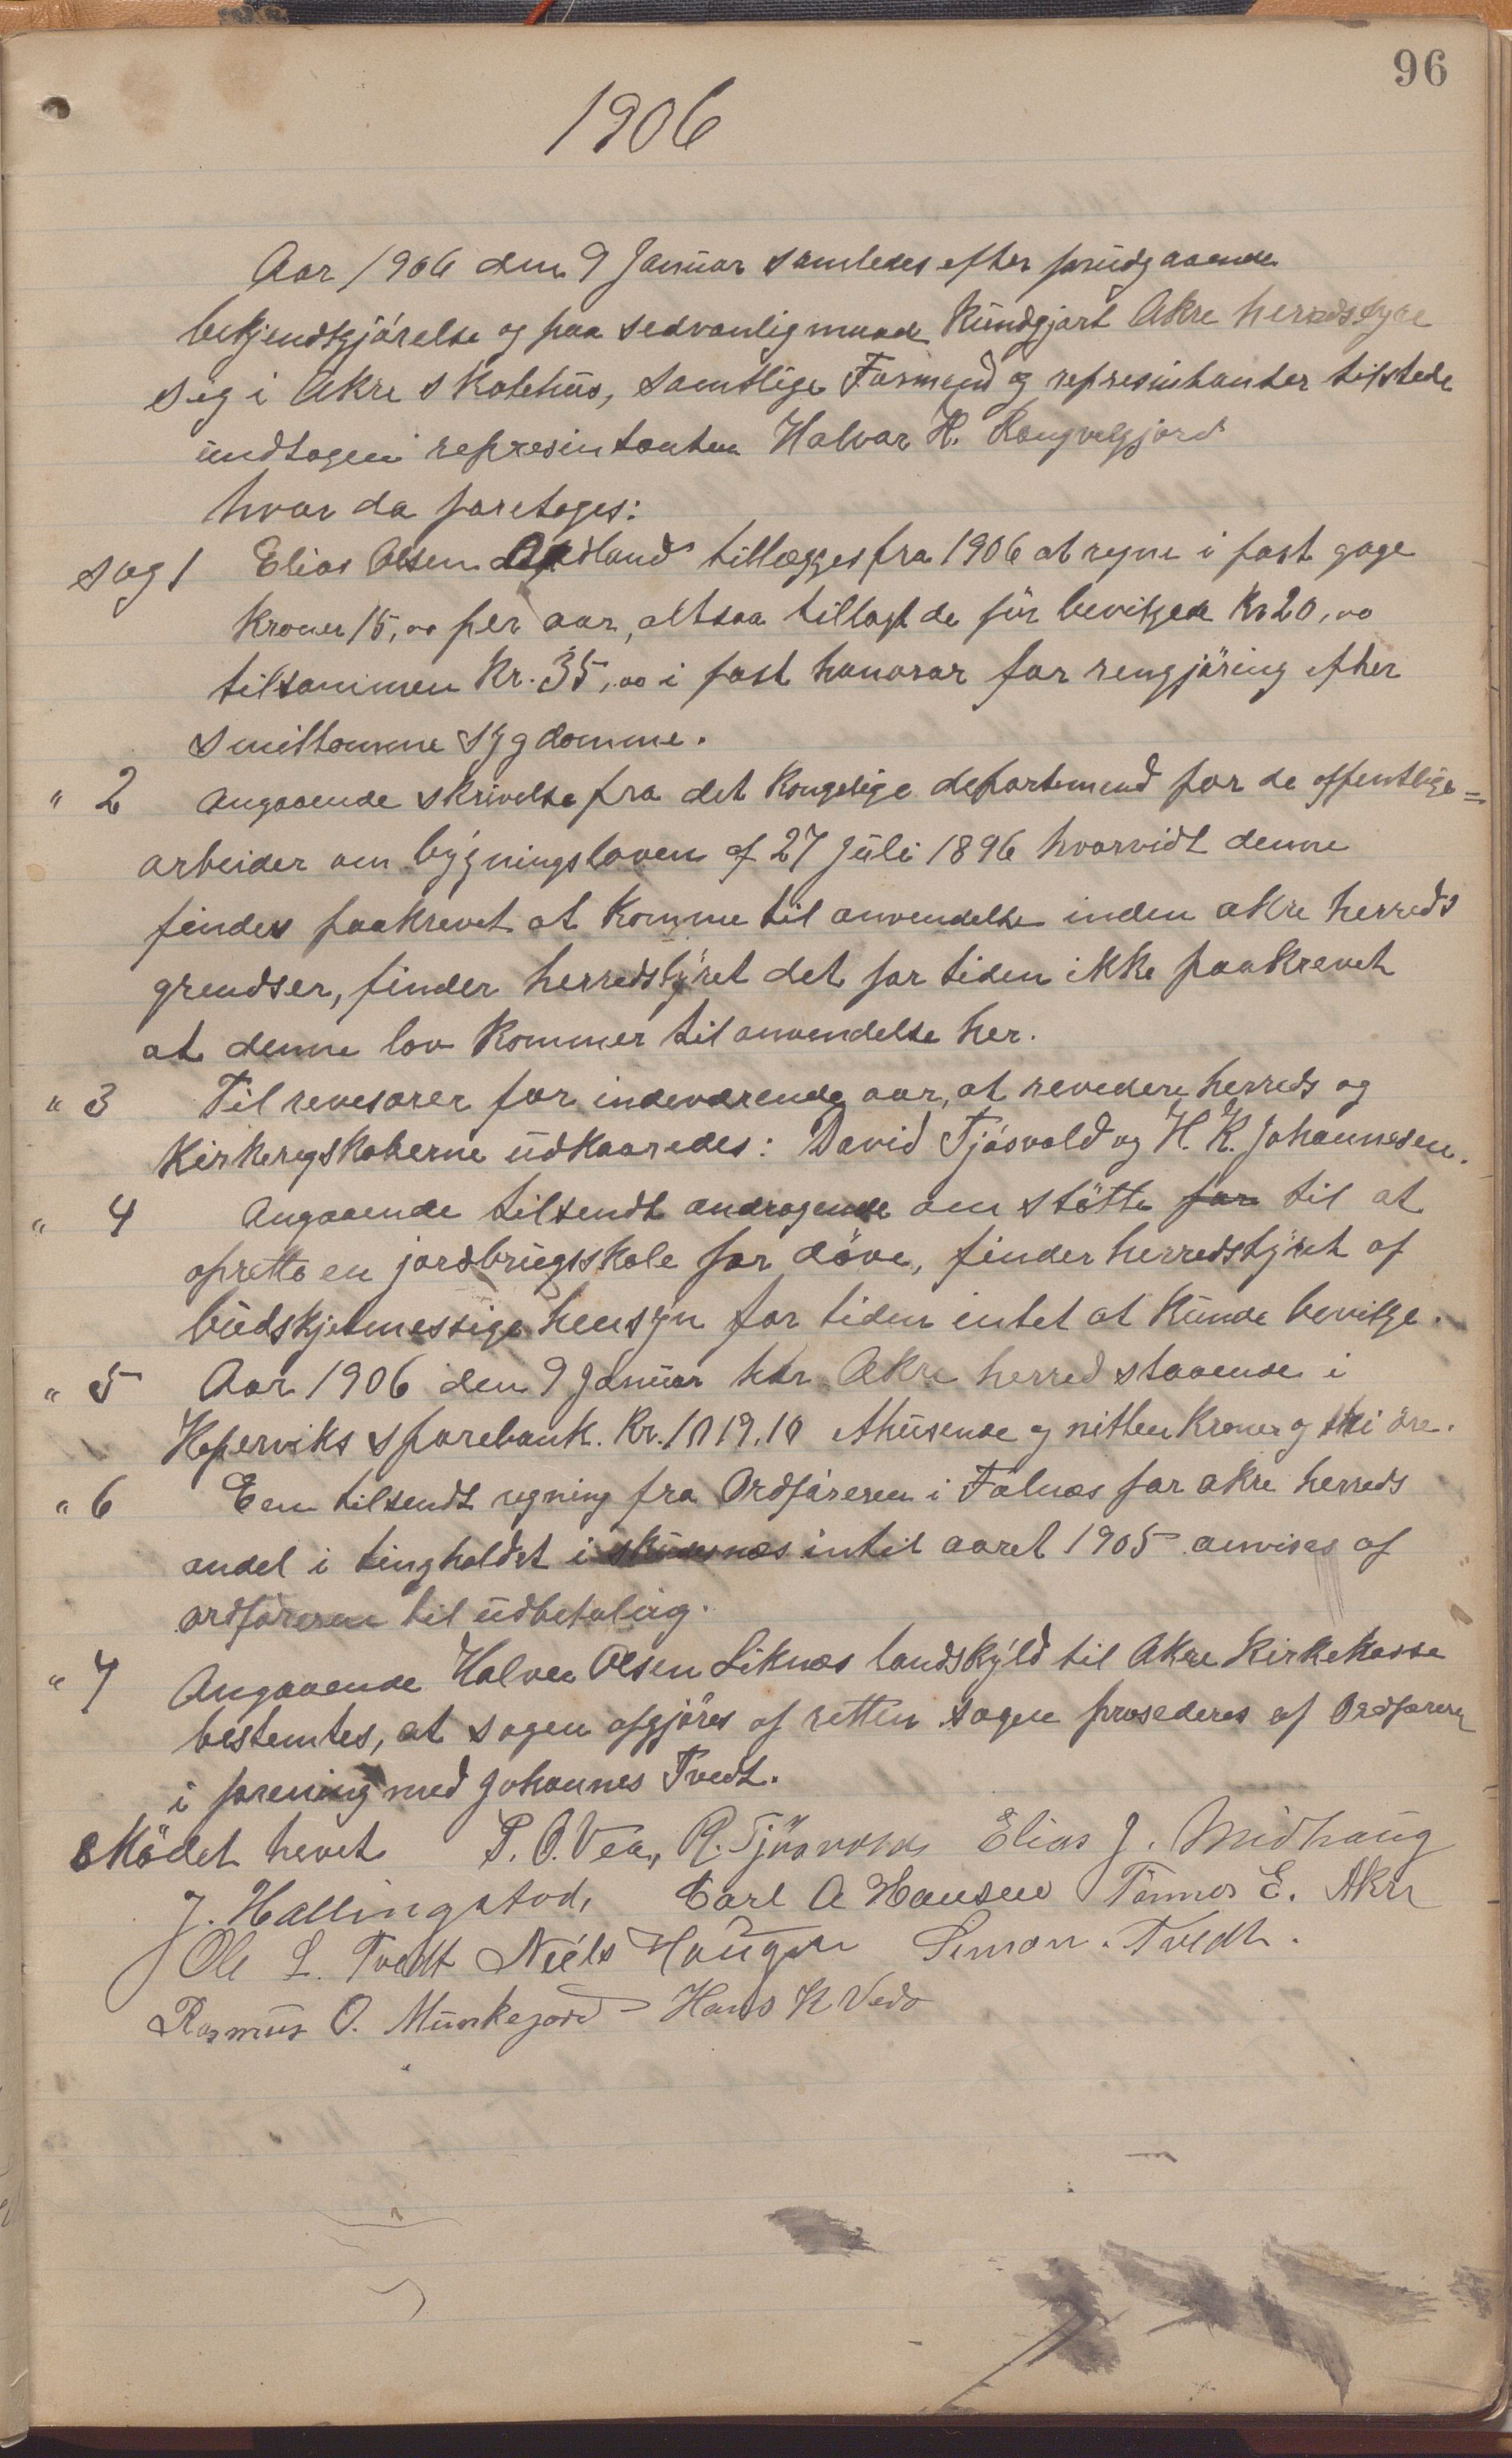 96
1906
Aar 1906 den 9 Januar samledes efter forudgaaende
bekjendtgjörelse og paa sedvanlig maade kundgjort Akre herredstyre
sig i Akre skolehus, samtlige Formend og represintanter tilstede
undtagen represintanten Halvar H. Rangvelgjord
hvor da foretoges:
sag 1 Elias Olsen Aadland tillægges fra 1906 at regne i fast gage
kroner 15,00 per aar, altsaa tillagt de för bevilgede Kr 20,00
tilsammen Kr. 35,00 i fast honorar for rengjöring efter
smitsomme sygdomme.
" 2 angaaende skrivelse fra det kongelige departemend for de offentlige=
arbeider om bygningsloven af 27 Juli 1896 hvorvidt denne
findes paakrevet at komme til anvendelse inden akre herreds
grendser, finder herredstyret det for tiden ikke paakrevet
at denne lov kommer til anvendelse her.
" 3 Til revesorer for indeværende aar, at revedere herreds og
Kirkeregskaberne udkaaredes: David Tjösvold og H. K. Johannesen.
" 4 Angaaende tilsendt andragende om stötte for til at
oprette en jordbrugsskole for döve, finder herredstyret af
budskjetmessige hensyn for tiden intet at kunde bevilge.
" 5 Aar 1906 den 9 Januar har Akre herred staaende i
Koperviks sparebank. Kr. 1019.10 ethusende og nitten kroner og ti öre.
" 6 Een tilsendt regning fra Ordföreren i Falnæs for akre herreds
andel i tingholdet i skudesnæs intil aaret 1905 anvises af
ordföreren til udbetaling.
" 7 Angaaende Halver Olsen Liknæs landskyld til Akre Kirkekasse
bestemtes, at sagen afgjöres af retten sagen prosederes af Ordförerer
i forening med Johannes Tvedt.
Mödet hevet P. O. Vea, R. Tjösvold Elias J. Midhaug
J. Hallingstad, Carl A Hansen Tönnes E. Akre
Ole L. Tvedt Niels Haugen Simon. Tvedt.
Rasmus O. Munkejord Hans K Vedö